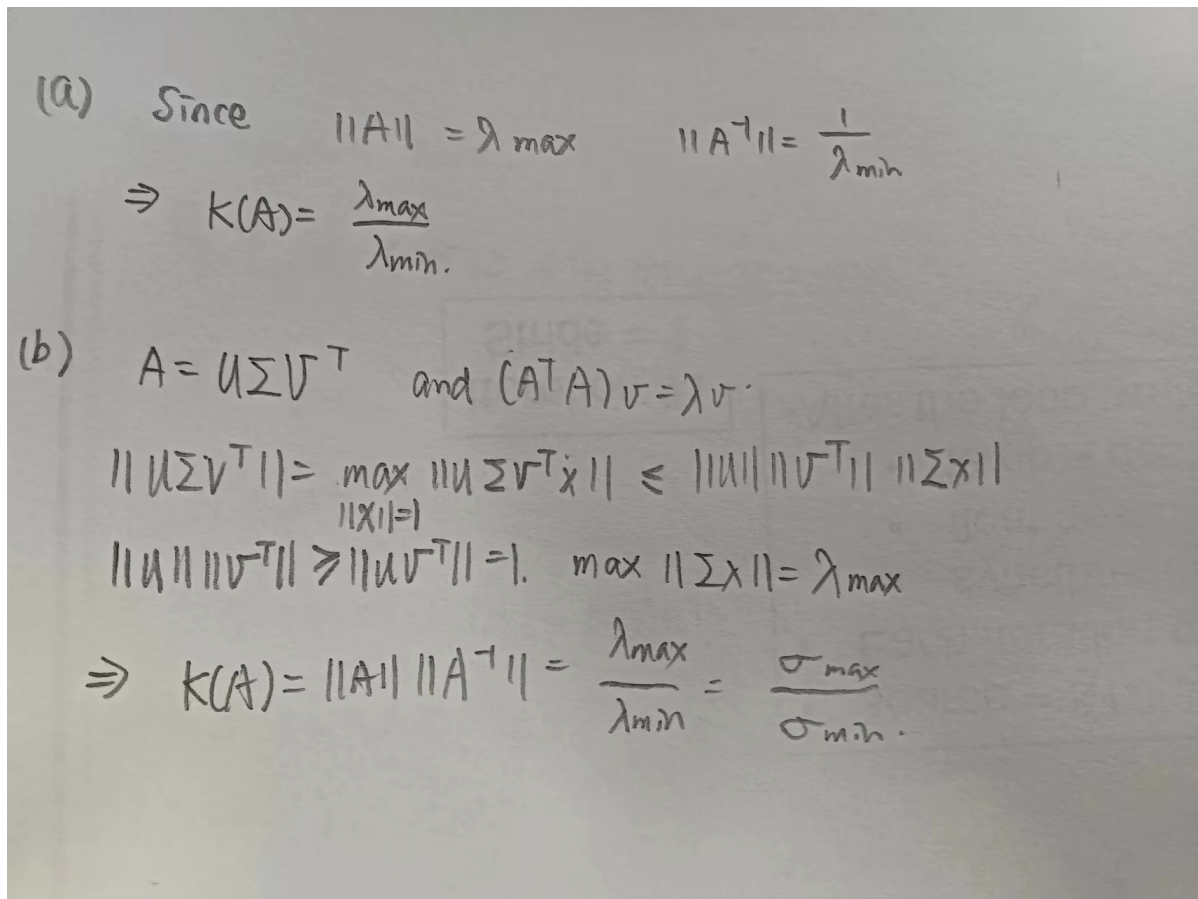 (a) Since ||A|| = λmax ||A⁻¹|| = 1/λmin
⇒ K(A) = λmax/λmin.
(b) A = UΣV^T and (A^T A)v = λv.
||UΣV^T|| = max_{||x||=1} ||UΣV^T x|| ≤ ||U|| ||V^T|| ||Σx||
||U|| ||V^T|| ≥ ||UV^T|| = 1. max ||Σx|| = λmax
⇒ K(A) = ||A|| ||A⁻¹|| = λmax/λmin = σmax/σmin.